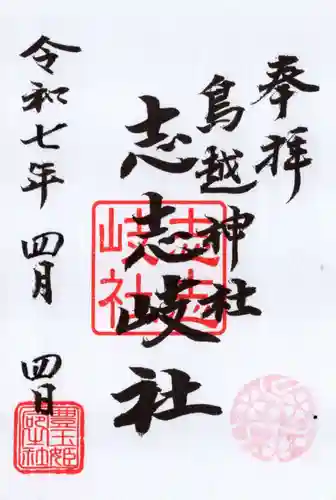 奉拝
鳥越神社
志志岐社
志志岐社
令和七年 四月 四日
豊玉姫